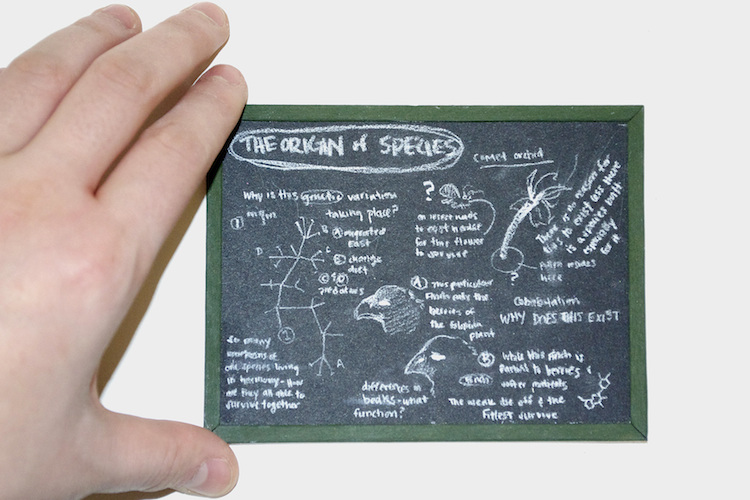 THE ORIGAN of SPECIES
Curved orchid
Why is this genetic variation
taking place?
1 origin
A migrated
East
B change
diet
C & D
predators
B
D
2
A
So many
of
one species living
in harmony - How
are they all able to
survive together
?
an insect needs
to exist in order
for this flower
to survive
There is no reason for
this to exist less there
is a species built
especially
for it
pollen
here
?
A This particular
Finch eats the
berries of
the
plant
WHY DOES THIS EXIST
B While this finch is
Partial to berries &
other
Finch
differences in
beaks - what
function?
The weak die off & the
Fittest survive